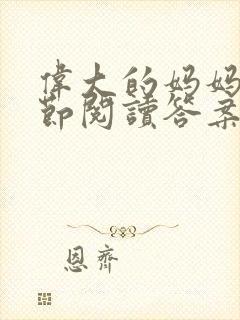 偉大的妈妈
節閱讀答案
恩齊